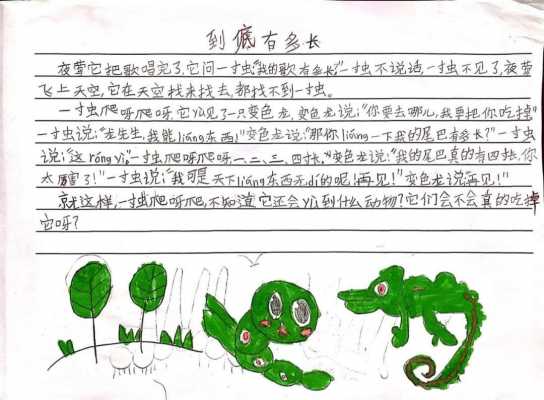 到底有多长
夜莺它把歌唱完了,它问一寸虫:“我的歌有多长?”一寸虫不说话,一寸虫不见了,夜莺
飞上天空,它在天空找来找去,都找不到一寸虫。
一寸虫爬呀爬呀,它yù见了一只变色龙,变色龙说:“你要去哪儿,我要把你吃掉”
一寸虫说:“龙先生,我能liáng东西!”变色龙说:“那你liáng一下我的尾巴有多长?”一寸虫
说:“这róng yì”,一寸虫爬呀爬呀一、二、三、四寸长,“变色龙说:“我的尾巴真的有四寸长,你
太厉害了!”一寸虫说:“我可是天下liáng东西无dí的呢!再见!”变色龙说再见!”
就这样,一寸虫爬呀爬,不知道它还会yù到什么动物?它们会不会真的吃掉
它呀?